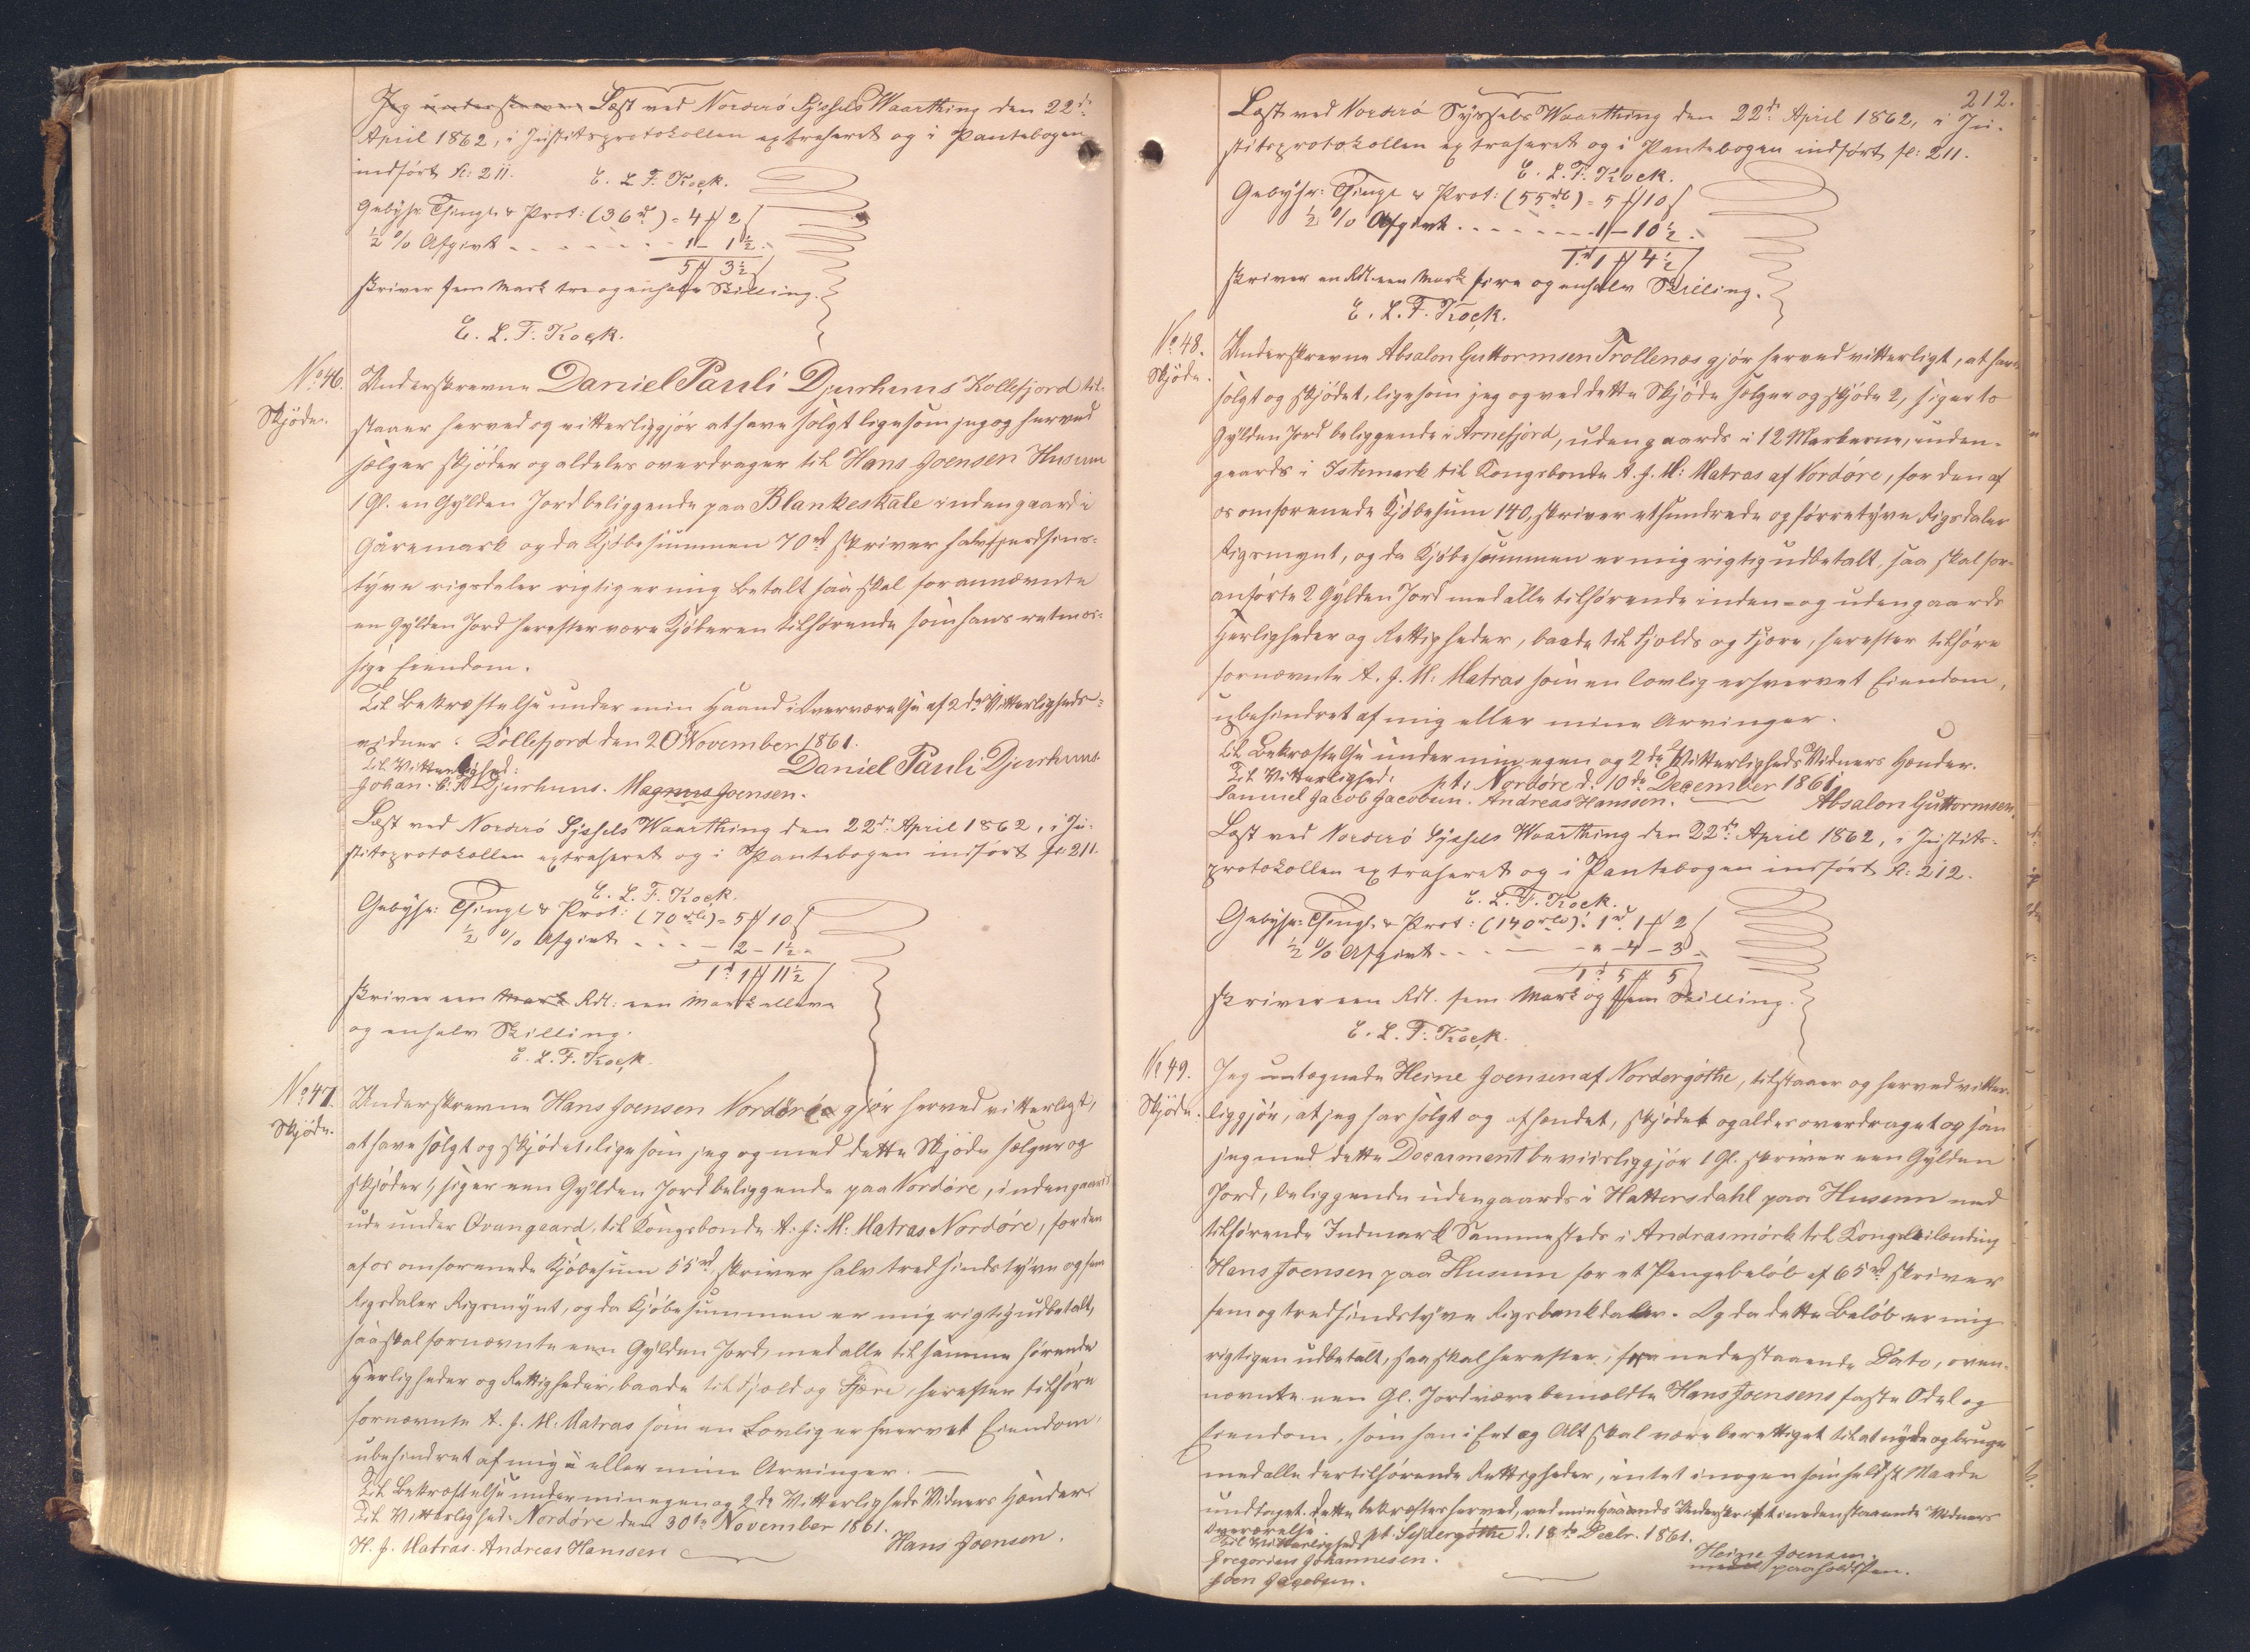 Jeg underskrevne Læst ved Norderö Syssels Waarthing den 22d:
April 1862, i Justitsprotokollen extraheret og i Pantebogen
indført fl: 211.
E. L. F. Kock.
Gebyhr Thingl: & Prot: (36rd) = 4 ℳ 2 ß
½ % Afgivt - - - - - - 1 - 1½ -
5 ℳ 3½ ß
skriver fem Mark tre og enhalv Skilling.
E. L. F. Kock.
No 46.
Skjøde.
Underskrevne Daniel Pauli Djurhuus Kollefjord til-
staaer herved og vitterliggjør at have solgt ligesom jeg og herved
sælger skjøder og aldeles overdrager til Hans Joensen Husum
1 Gl. en Gylden Jord beliggende paa Blankeskale indengaard i
Gåremark og da Kjøbesummen 70rd skriver halvfjerdsens-
tyve rigsdaler rigtig er mig betalt saa skal forannævnte
en Gylden Jord herefter være Kjøberen tilhørende som hans retmæs-
sige Eiendom.
Til Bekræftelse under min Haand i Overværelse af 2de Vitterligheds-
vidner. Kollefjord den 20 November 1861.
Til Vitterlighed:
Daniel Pauli Djurhuus
Johan. C. P. Djurhuus. Magnus Joensen.
Læst ved Norderö Syssels Waarthing den 22d: April 1862, i Ju-
stitsprotokollen extraheret og i Pantebogen indført fl: 211.
E. L. F. Kock.
Gebyhr: Thingl: & Prot: (70rdl) = 5 ℳ 10 ß
½ % Afgivt - - - - 2 - 1½ -
1rd 1 ℳ 11½ ß
skriver een Mark Rdl: een Mark elleve
og enhalv Skilling.
E. L. F. Kock.
No 47.
Skjøde.
Underskrevne Hans Joensen Nordöre gjør herved vitterligt,
at have solgt og skjødet, ligesom jeg og med dette Skjøde sælger og
skjøder 1, siger een Gylden Jord beliggende paa Nordöre, indengaards
ude under Ovangaard, til Kongsbonde A. J: M: Matras Nordöre, for den
af os omforenede Kjøbesum 55rd, skriver halvtredsindstyve og fem
Rigsdaler Rigsmynt, og da Kjøbesummen er mig rigtig udbetalt,
saa skal fornævnte een Gylden Jord, med alle til samme hørende
Herligheder og Rettigheder, baade til Fjeld og Fjære, herefter tilhøre
fornævnte A. J. M. Matras som en Lovlig erhvervet Eiendom,
ubehindret af mig eller mine Arvinger.
Til Bekræftelse under min egen og 2de Vitterligheds Vidners Hænder
Til Vitterlighed: Nordöre den 30te November 1861.
Hans Joensen.
H. J. Matras. Andreas Hanssen
212.
Læst ved Norderö Syssels Waarthing den 22d: April 1862, i Ju-
stitsprotokollen extraheret og i Pantebogen indført fl: 211.
E. L. F. Kock.
Gebyhr: Thingl: & Prot: (55rdl) = 5 ℳ 10 ß
½ % Afgivt - - - - - - - 1 - 10½ -
1rd 1 ℳ 4½ ß
skriver en Rdl een Mark fire og enhalv Skilling.
E. L. F. Kock.
No 48.
Skjøde.
Underskrevne Absalon Guttormsen Trollenæs gjør herved vitterligt, at have
solgt og skjødet, ligesom jeg og ved dette Skjøde sælger og skjøde 2, siger to
Gylden Jord beliggende i Arnefjord, uden gaards i 12 Markerne, inden-
gaards i Istemark til Kongsbonde A. J. M: Matras af Nordöre, for den af
os omforenede Kjøbesum 140, skriver ethundrede og førretyve Rigsdaler
Rigsmynt, og da Kjøbesummen er mig rigtig udbetalt, saa skal for-
anførte 2 Gylden Jord med alle tilhørende inden- og udengaards
Herligheder og Rettigheder, baade til Fjelds og Fjære, herefter tilhøre
fornævnte A. J. M: Matras som en lovlig erhvervet Eiendom,
ubehindret af mig eller mine Arvinger.
Til Bekræftelse under min egen og 2de Vitterligheds Vidners Hænder.
Til Vitterlighed: pt: Nordöre d: 10de December 1861.
Samuel Jacob Jacobsen. Andreas Hanssen. Absalon Guttormsen.
Læst ved Norderö Syssels Waarthing den 22d: April 1862, i Justits-
protokollen extraheret og i Pantebogen indført fl: 212.
E. L. F. Kock.
Gebyhr: Thingl: & Prot: (140rdl): 1rd 1 ℳ 2 ß
½ % Afgivt - - - - " - 4 - 3 -
1rd 5 ℳ 5 ß
skriver een Rdl. fem Mark og fem Skilling.
E. L. F. Kock.
No 49.
Skjøde.
Jeg untegnede Heine Joensen af Nordergöthe, tilstaaer og herved vitter-
liggjør, at jeg har solgt og afhændet, skjødet og aldes overdraget og som
jeg med dette Document beviisliggjør 1 Gl. skriver een Gylden
Jord, beliggende udengaards i Hattersdahl paa Husum med
tilhørende Indmark Sammesteds i Andrasmörk til Kongsleilænding
Hans Joensen paa Husum for et Pengebeløb af 65rd skriver
fem og tredsindstyve Rigsbankdaler. Og da dette Beløb er mig
rigtigen udbetalt, saa skal herefter, fra nedestaaende Dato, oven-
nævnte een Gl. Jord være bemeldte Hans Joensens faste Odel og
Eiendom, som han i Eet og Alt skal være berettiget til at nyde og bruge
med alle dertilhørende Rettigheder, intet i nogen somhelst Maade
undtaget. Dette bekræftes herved, ved min Haands Underskrift i nedenstaaende Vidners
Overværelse. pt. Sydergöthe d. 18de Decbr. 1861.
Til Vitterlighed
Gregorius Johannesen.
Heine Joensen.
Joen Jacobsen.
med paaholdt Pen.